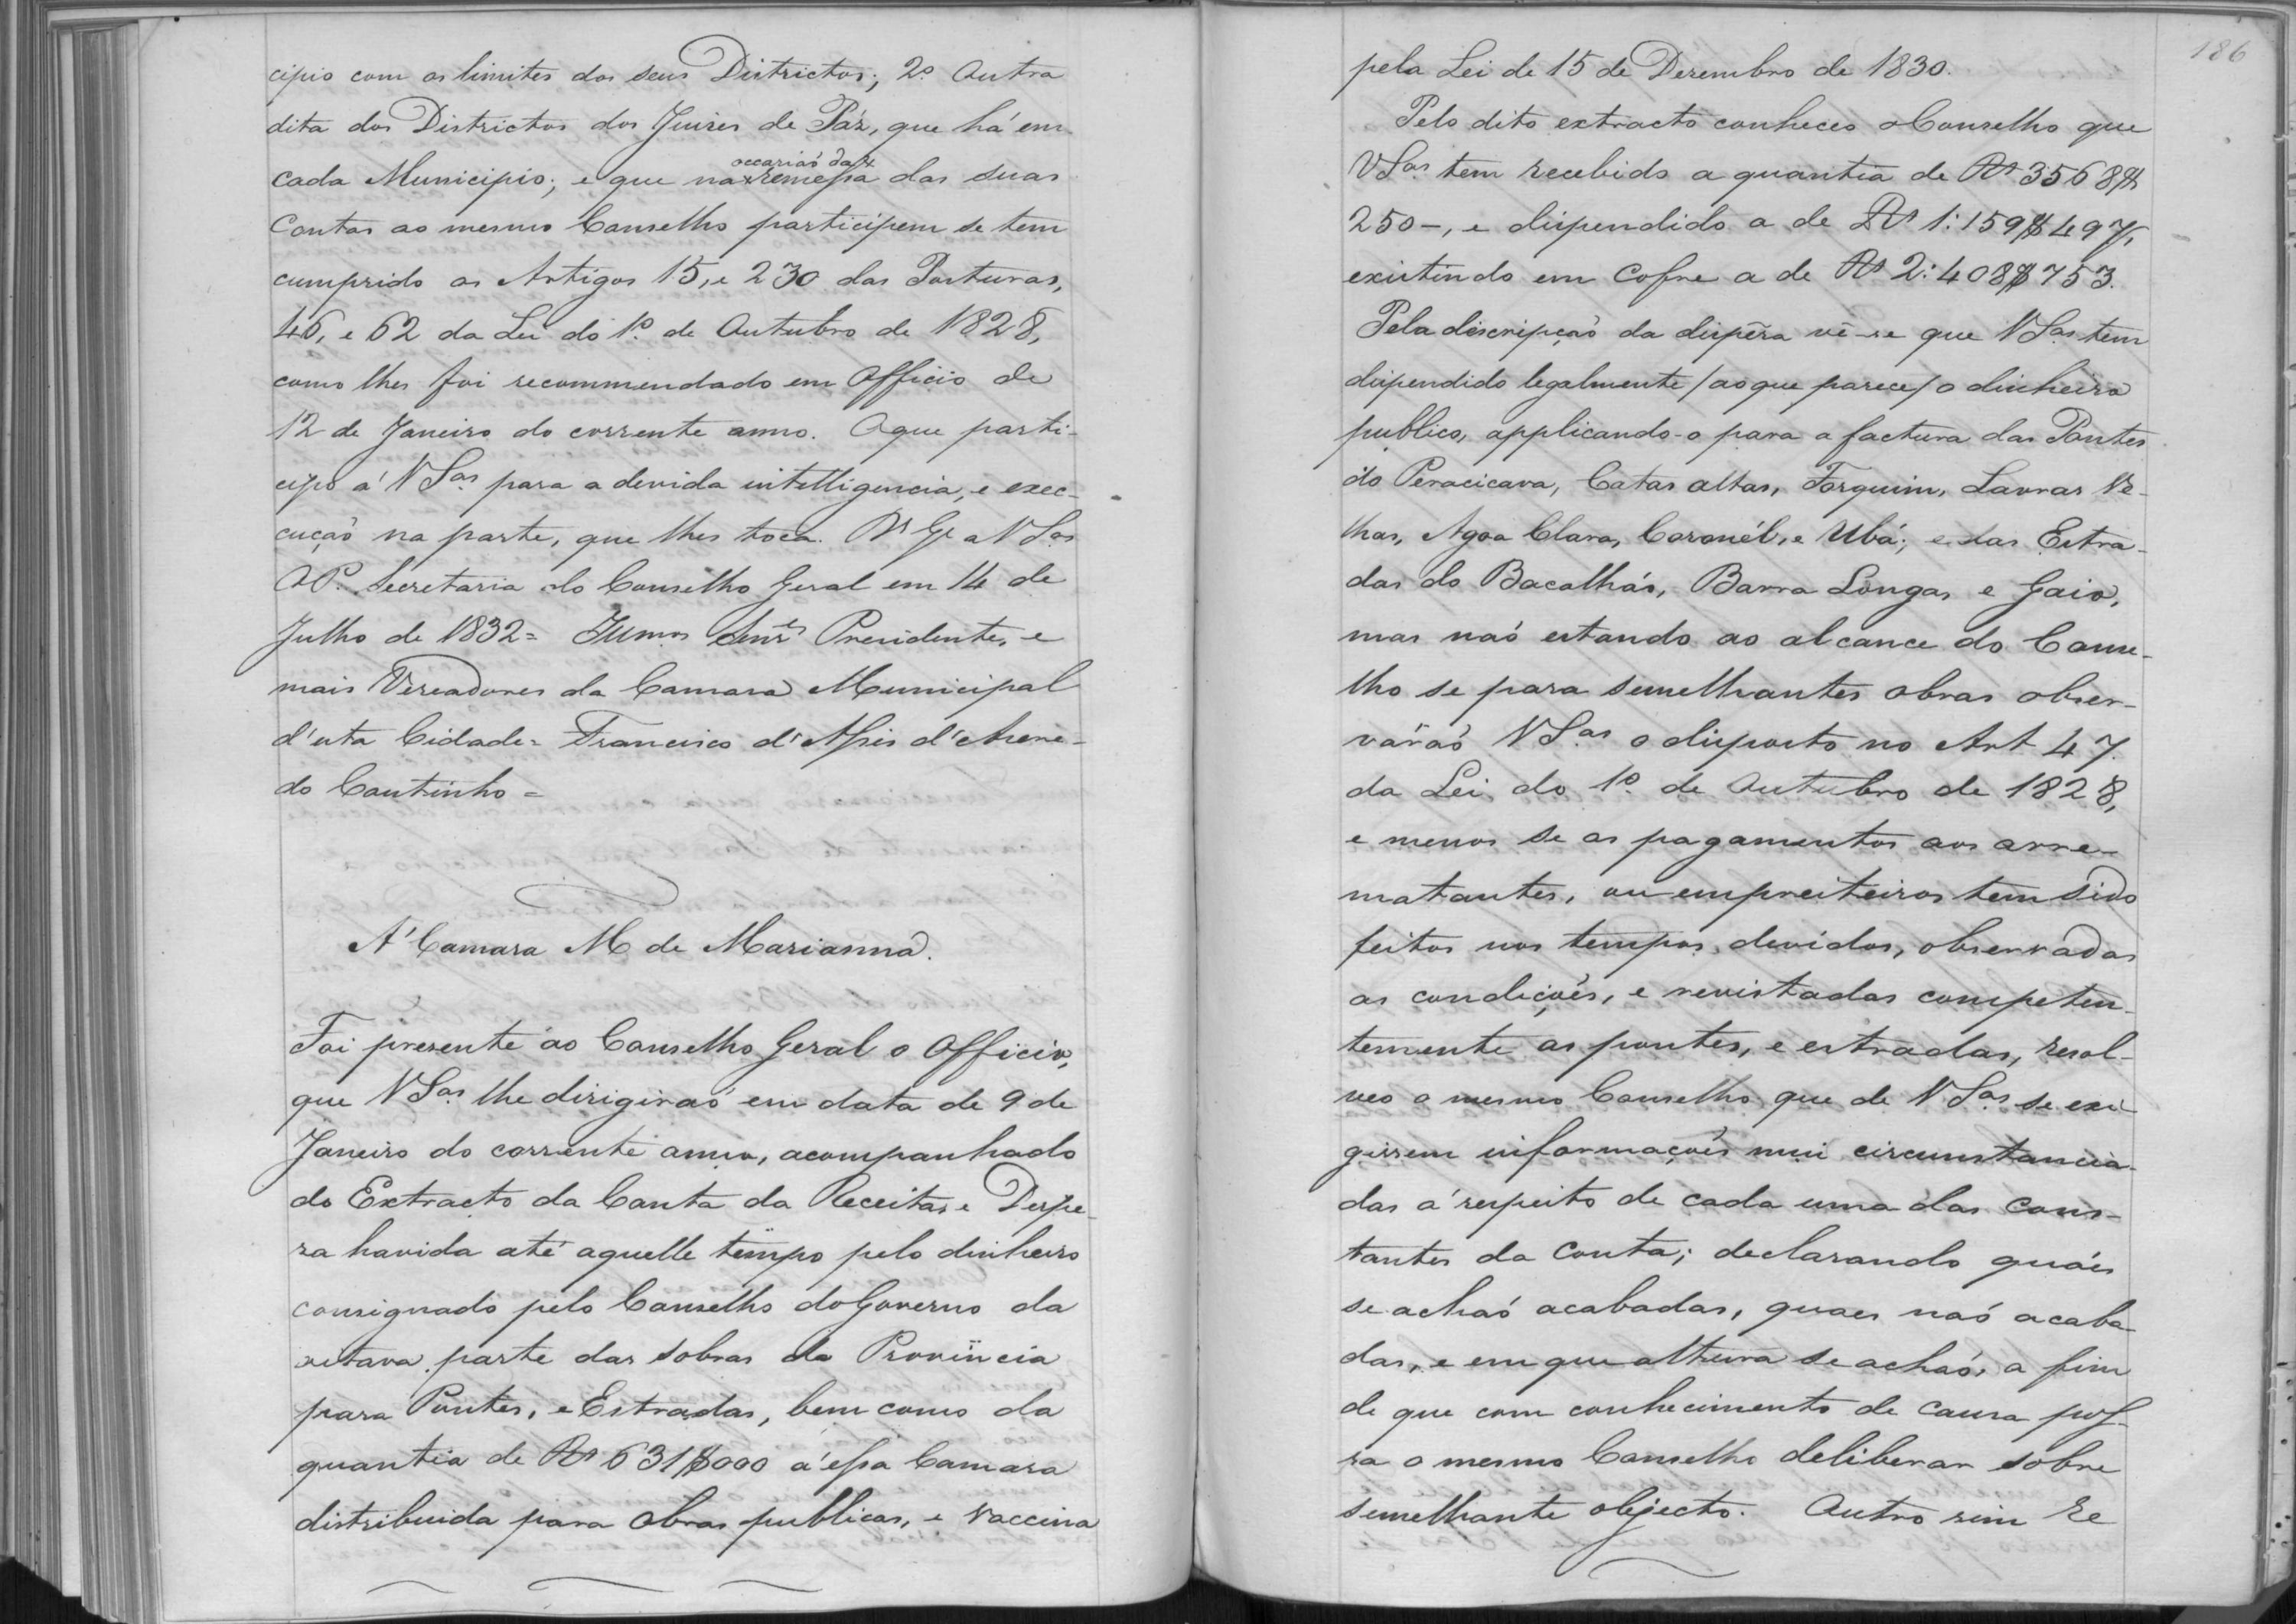 cipio com os limites dos seus Districtos; 2.º Outra
dita dos Districtos dos Juizes de Páz, que há em
cada Municipio; e que na occazião da remessa das suas
Contas ao mesmo Conselho participem se tem
cumprido os Artigos 15, e 230 das Posturas,
46, e 62 da Lei do 1.º de Outubro de 1828,
como lhes foi recommendado em Officio de
12 de Janeiro do corrente anno. O que parti-
cipo á VSas para a devida intelligencia, e exec-
cução na parte, que lhes toca. Ds Ge a VSas
OP. Secretaria do Conselho Geral em 14 de
Julho de 1832 = Illmos Snres Presidente, e
mais Vereadores da Camara Municipal
d'esta Cidade = Francisco d'Assis d'Azere-
do Coutinho =
A' Camara M de Marianna.
Foi presente ao Conselho Geral o Officio,
que VSas lhe dirigirão em data de 9 de
Janeiro do corrente anno, acompanhado
do Extracto da Conta da Receita, e Despe-
za havida até aquelle tempo pelo dinheiro
consignado pelo Conselho do Governo da
oitava parte das sobras da Provincia
para Pontes, e Estradas, bem como da
quantia de Rs 631$000 á essa Camara
distribuida para Obras publicas, e vaccina
186
pela Lei de 15 de Dezembro de 1830.
Pelo dito extracto conheceo o Conselho que
VSas tem recebido a quantia de Rs 3568$
250 -, e dispendido a de Rs 1:159$497,
existindo em Cofre a de Rs 2:408$753.
Pela discripção da dispeza vê-se que VSas tem
dispendido legalmente /ao que parece/ o dinheiro
publico, applicando-o para a factura das Pontes
do Peracicava, Catas altas, Forquim, Lavras Ve-
lhas, Agoa Clara, Coronél, e Ubá; e das Estra-
das do Bacalháo, Barra Longa, e Gaio,
mas não estando ao alcance do Conse-
lho se para semelhantes obras obser-
varão VSas o disposto no Art 47.
da Lei do 1.º de Outubro de 1828,
e menos se os pagamentos aos arre-
matantes, ou empreiteiros tem sido
feitos nos tempos devidos, observadas
as condições, e revistadas competen-
temente as pontes, e estradas, resol-
veo o mesmo Conselho que de VSas se exi-
gissem informações mui circumstancia-
das á respeito de cada uma das cons-
tantes da Conta; declarando quáes
se achão acabadas, quaes não acaba-
das, e em que altura se achão, a fim
de que com conhecimento de causa pos-
sa o mesmo Conselho deliberar sobre
semelhante objecto. Outro sim Re